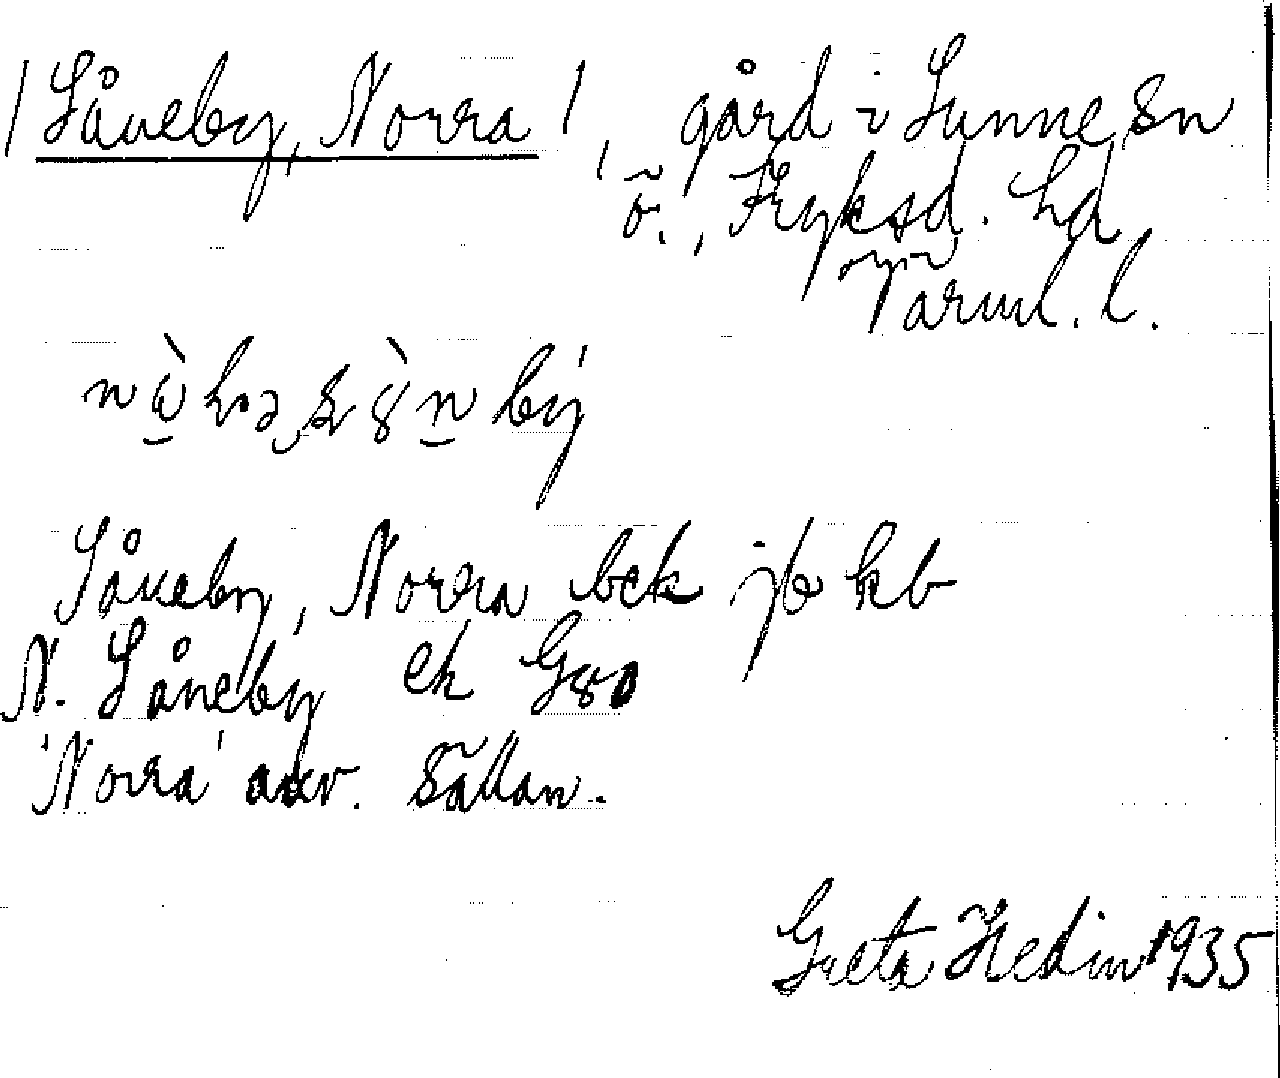 /Såneby, Norra/, gård i Sunne sn
ö., Fryksd. hd
Värml. l.
Såneby, Norra bck jb kb
N. Såneby ek G80
'Norra' anv. sällan.
Greta Hedin 1935